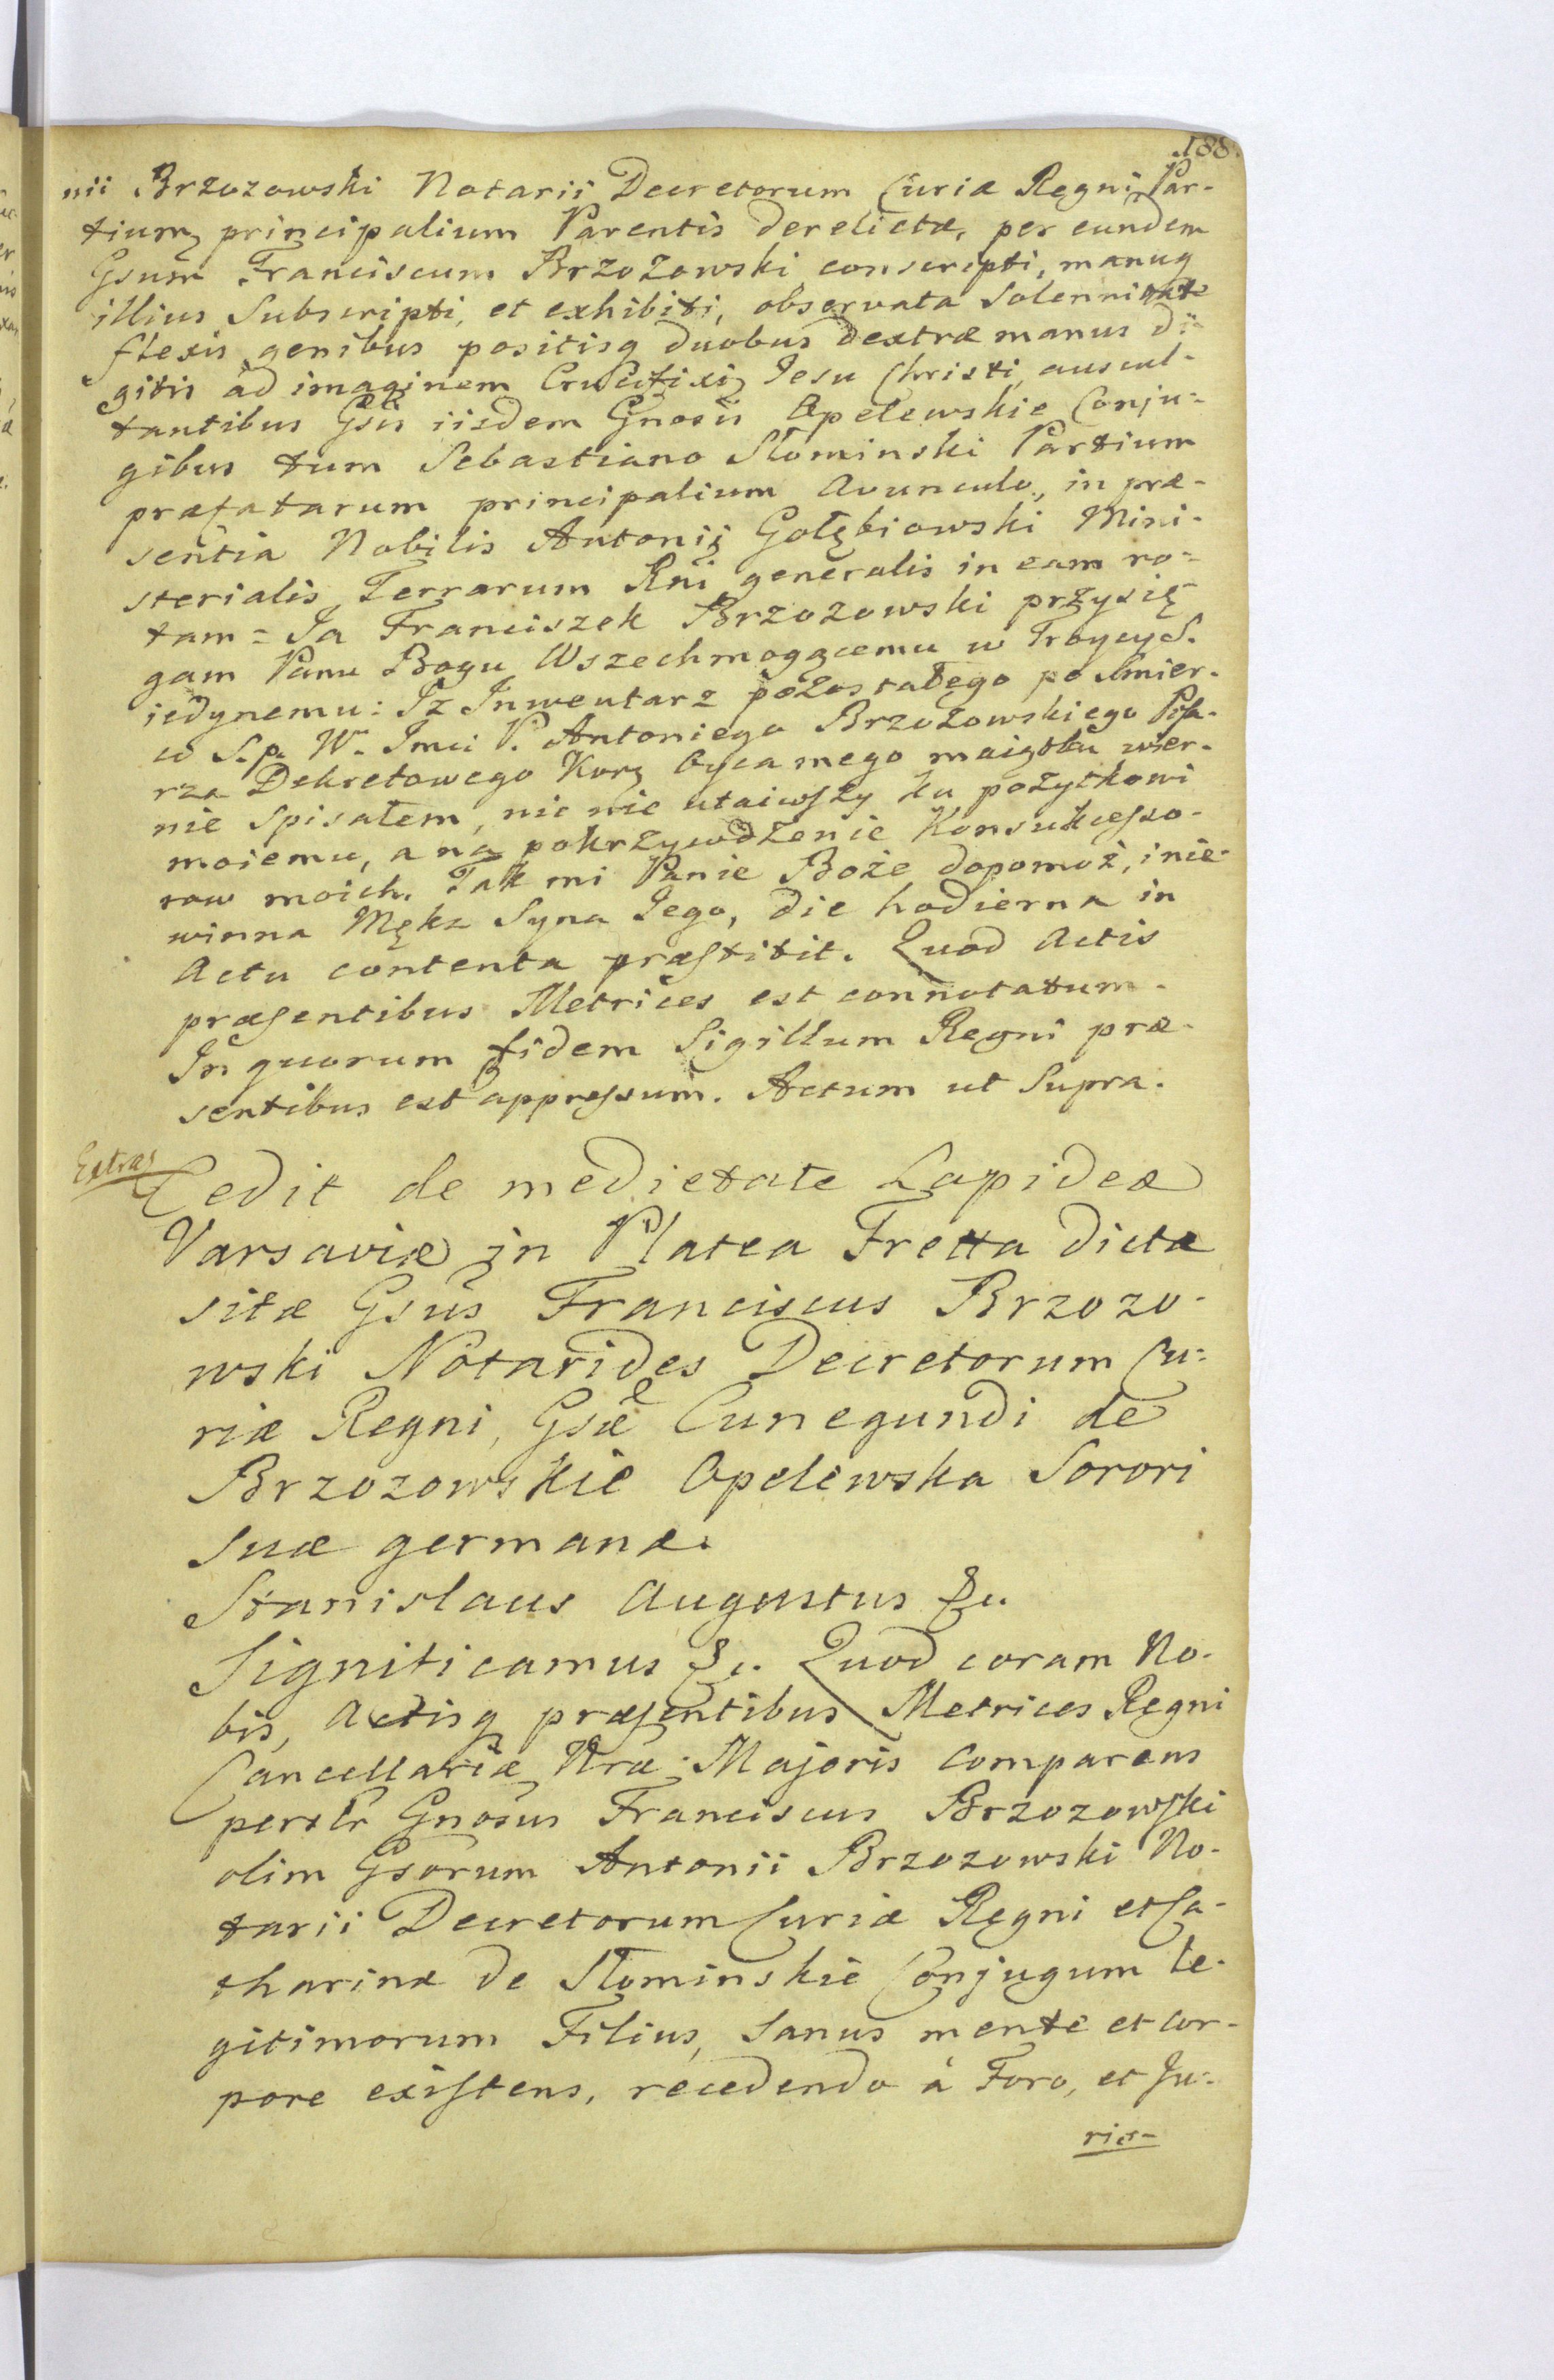 188.
nii Brzozowski Notarii Decretorum Curiæ Regni Par-
tiumq principalium Parentis derelictæ, per eundem
Gsum Franciscum Brzozowski conscripti, manuq
illius Subscripti, et exhibiti, observata Solennitate
flexis genibus positisq duobus dextræ manus di-
gitis ad imaginem Crucifixi Jesu Christi, auscul-
tantibus Gsis iisdem Gnosis Opelewskie Conju-
gibus tum Sebastiano Słominski Partium
præfatarum principalium Avunculo, in præ-
sentia Nobilis Antonii Gołębiowski Mini-
sterialis Terrarum Rni generalis in eam ro-
tam = Ja Franciszek Brzozowski przysię-
gam Panu Bogu Wszechmogącemu w Troycy S.
iedynemu: Iz Inwentarz pozostałego po smier-
ci S.p. W. Imci P. Antoniego Brzozowskiego Pisa-
rza Dekretowego Kor. Oyca mego maiątku wier-
nie Spisałem, nic nie utaiwszy ku pożytkowi
moiemu, a na pokrzywdzenie Konsukcesso-
row moich. Tak mi Panie Boże dopomoż, i nie-
winna Męka Syna Jego, die hodierna in
Actu contenta præstitit. Quod Actis
præsentibus Metrices est connotatum.
In quorum fidem Sigillum Regni præ-
sentibus est appressum. Actum ut Supra.
Extras
Cedit de medietate Lapideæ
Varsaviæ in Platea Fretta dicta
sitæ Gsus Franciscus Brzozo-
wski Notarides Decretorum Cu-
riæ Regni, Gsæ Cunegundi de
Brzozowskie Opelewska Sorori
suæ germanæ.
Stanislaus Augustus &c.
Significamus &c. Quod coram No-
bis, Actisq præsentibus Metrices Regni
Cancellariæ Nræ Majoris comparens
perslr Gnosus Franciscus Brzozowski
olim Gsorum Antonii Brzozowski No-
tarii Decretorum Curiæ Regni et Ca-
tharinæ de Słominskie Conjugum le-
gitimorum Filius, Sanus mente et cor-
pore existens, recedendo à Foro, et Ju-
ris-